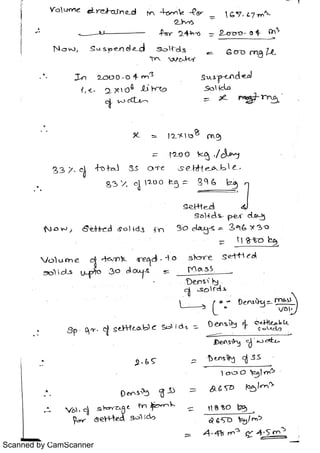 Volume detained in tank for 2hrs = 167.67 m³
———〃——— for 24hrs = 2000.04 m³
Now, Suspended solids in water = 600 mg/L
∴ In 2000.04 m³ suspended
i.e. 2×10⁶ litres solids
of water = x mg
x = 12×10⁸ mg
= 1200 kg /day
33 %. of total SS are settleable.
∴ 33 %. of 1200 kg = 396 kg
settled solids per day
Now, settled solids in 30 days = 396 × 30
= 11880 kg
Volume of tank reqd. to store settled
solids upto 30 days = mass
Density of solids
(∵ Density = mass
vol.)
∴ Sp. gr. of settleable solids = Density of settleable solids
Density of water
2.65 = Density of SS
1000 kg/m³
∴ Density of SS = 2650 kg/m³
∴ Vol. of storage in tank = 11880 kg
for settled solids 2650 kg/m³
= 4.48 m³ ≃ 4.5 m³
Scanned by CamScanner